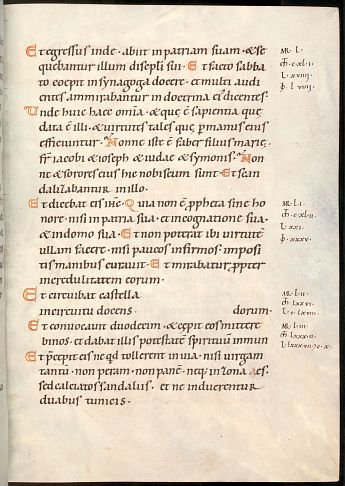 Et egressus inde · abiit in patriam suam · & se
quebantur illum discipli sui · Et facto sabba
to coepit in synagoga docere · et multi audi
entes ammirabantur in doctrina ei' dicentes ·
Unde huic haec om̄ia · & quę ē sapientia quę
data ē illi · & virtutes tales quę p manus eius
efficiuntur · Nonne iste ē faber filius marię
fr̄ iacobi & ioseph & iudae & symonis · Non
ne & sorores eius hic nobiscum sunt · Et scan
dalizabantur in illo ·
Et dicebat eis ihc · Quia non ē ppheta sine ho
nore · nisi in patria sua · et in cognatione sua ·
& in domo sua · Et non poterat ibi virtutē
ullam facere · nisi paucos infirmos · imposi
tis manibus curavit · Et mirabatur ppter
incredulitatem eorum ·
Et circuibat castella
in circuitu docens dorum ·
Et convocavit duodecim · & cępit eos mittere
binos · et dabat illis potestatē spirituū inmun
Et pcepit eis ne qd tollerent in via · nisi virgam
tantū · non peram · non panē · neq; in zona aes ·
sed calciatos sandaliis · et ne induerentur
duabus tunicis ·
MR · L ·
L · xviii ·
MR · L · i ·
L · xxi ·
MR · L · ii ·
MR · L · iii ·